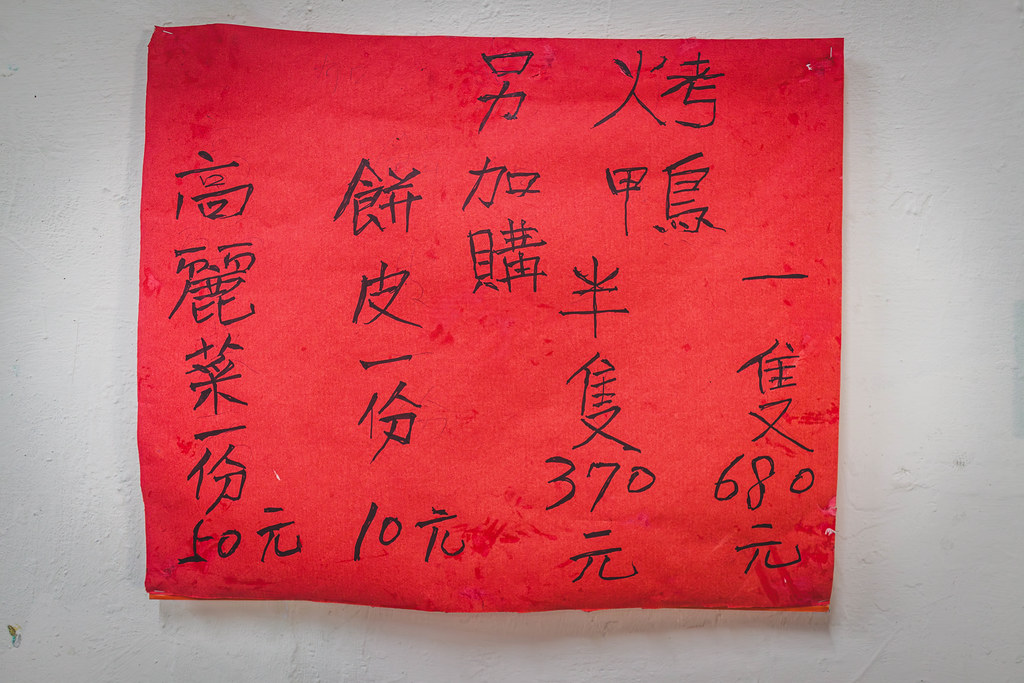 烤鴨
一隻680元
半隻370元
另加購
餅皮一份10元
高麗菜一份50元